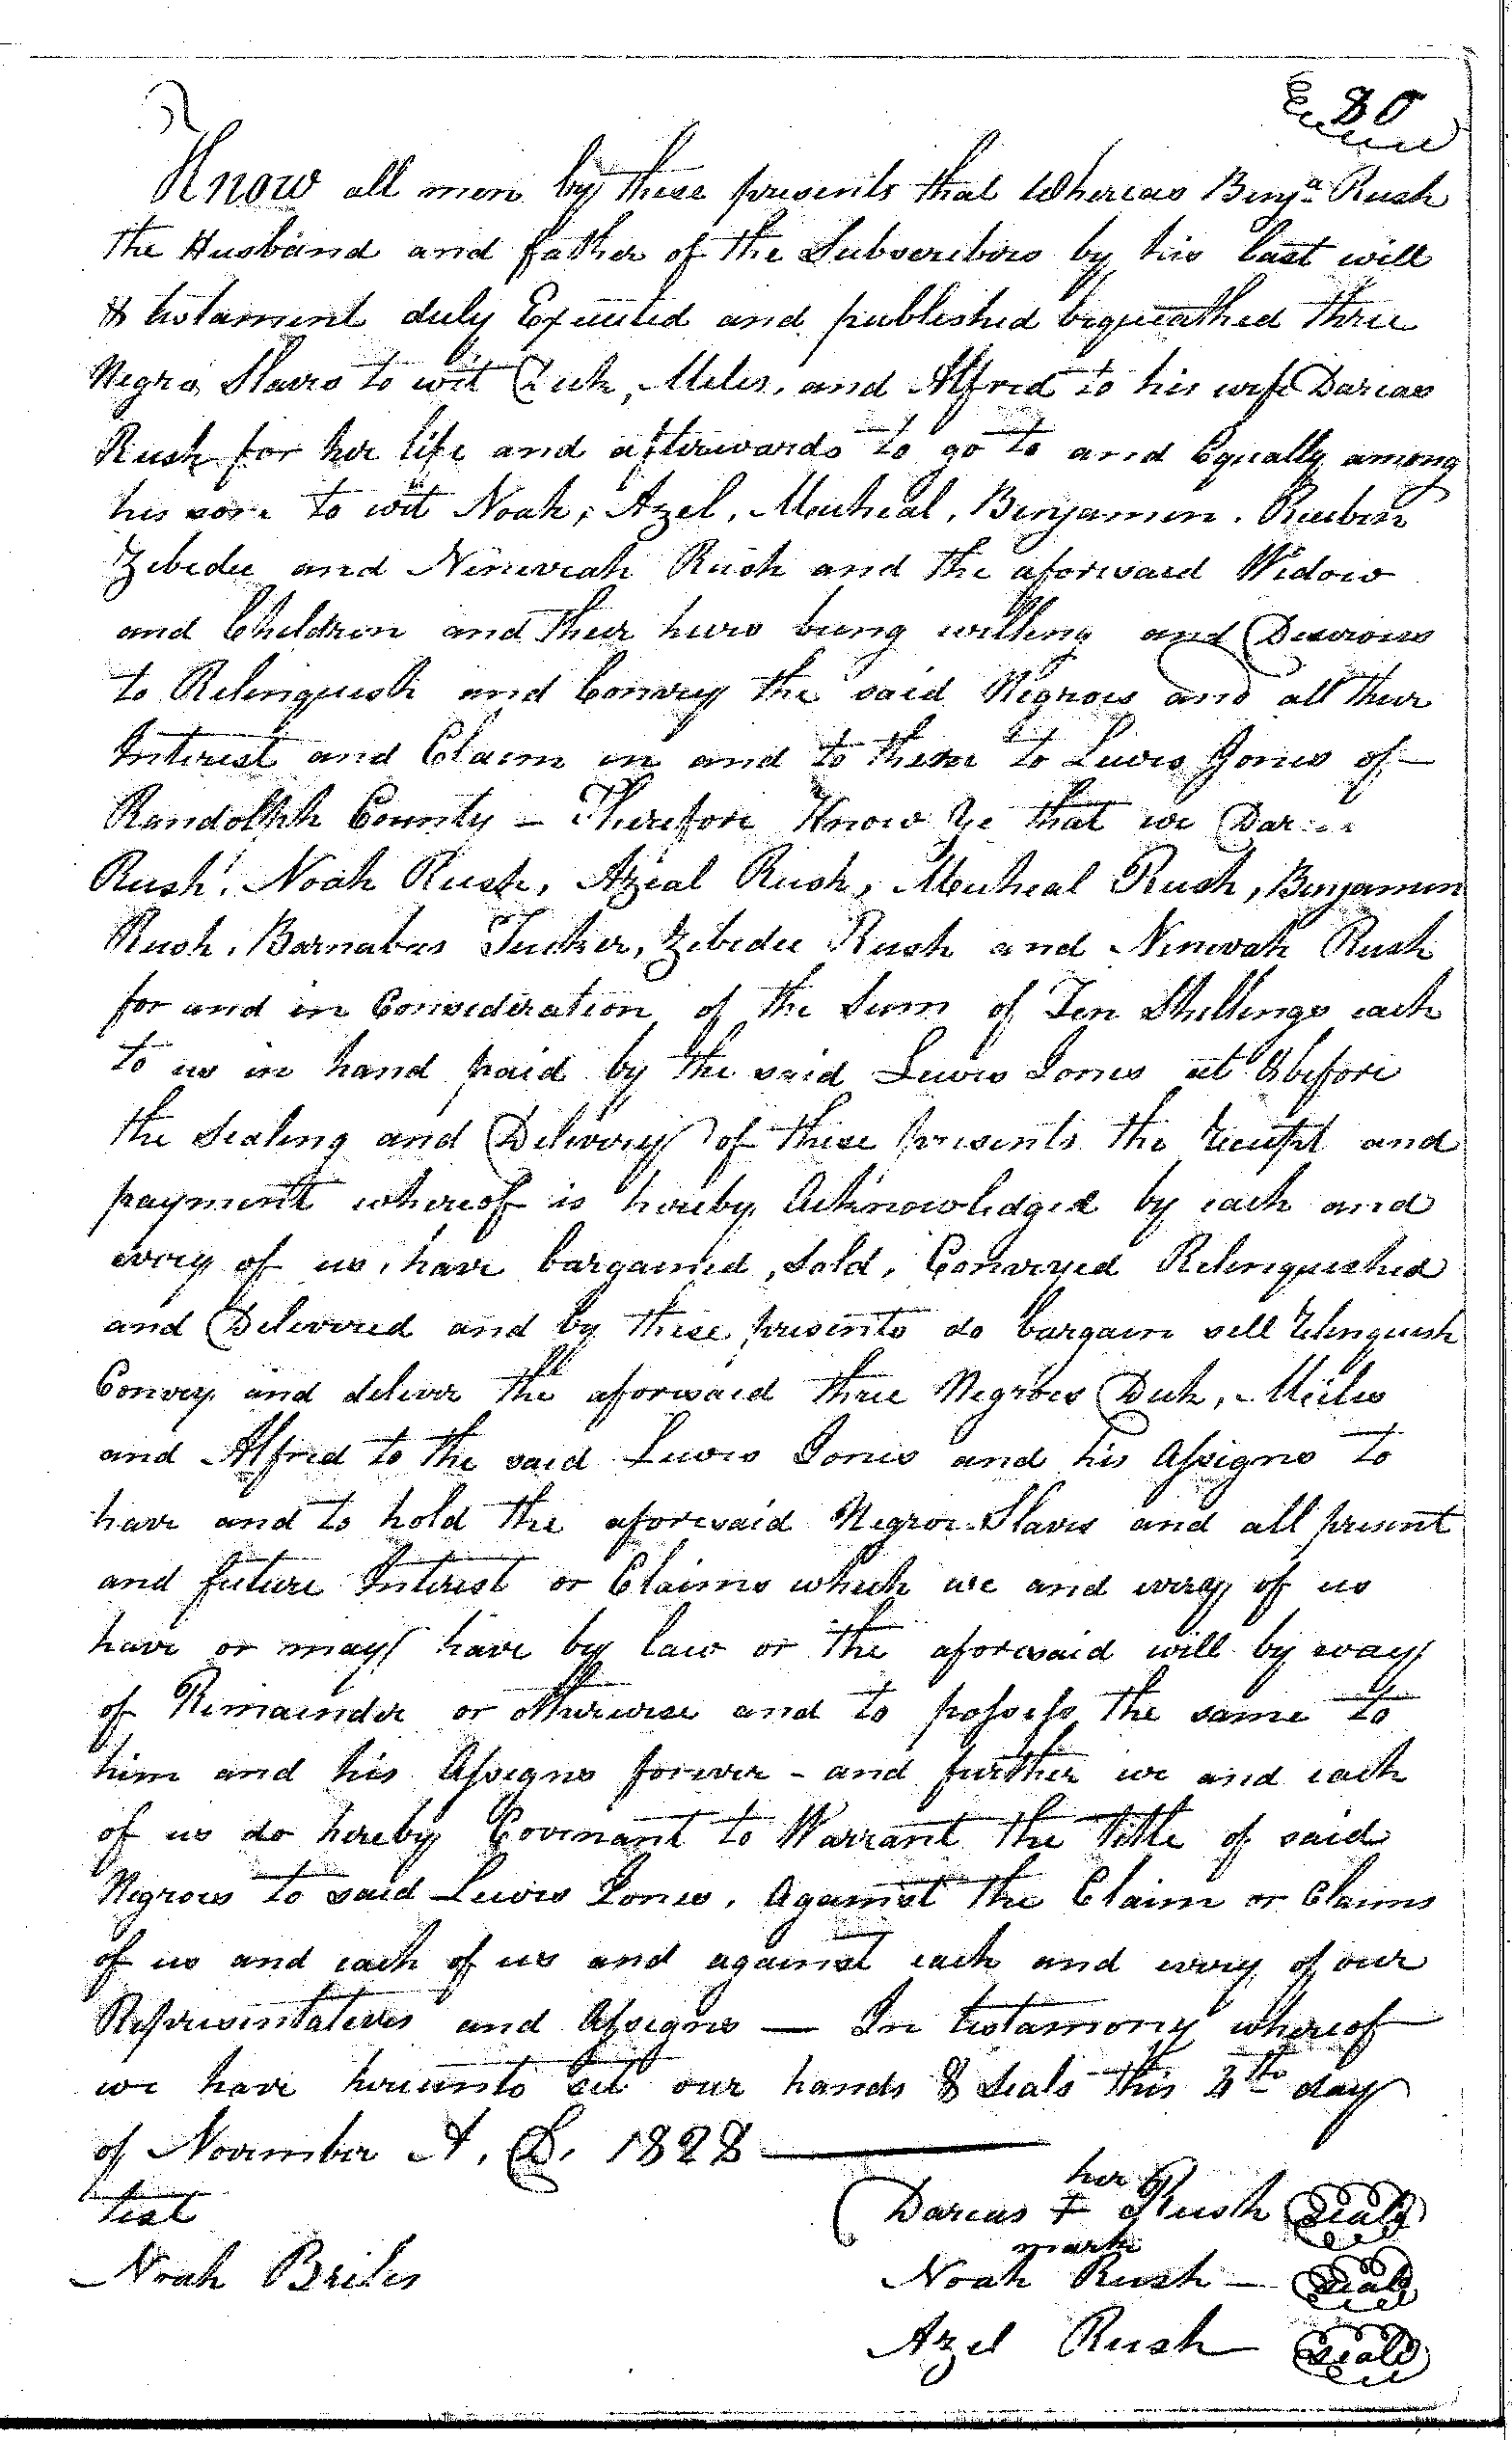 80
Know all men by these presents that Whereas Benja Rush
the Husband and father of the Subscribers by his last will
& testament duly Executed and published bequeathed three
Negro Slaves to wit Dick, Miles, and Alfred to his wife Darcas
Rush for her life and afterwards to go to and Equally among
his sons to wit Noah, Azel, Micheal, Benjamin. Reuben
Zebedee and Ninevah Rush and the aforesaid Widow
and Children and their heirs being willing and Desirous
to Relinquish and Convey the said Negroes and all their
Interest and Claim in and to them to Lewis Jones of
Randolph County – Therefore Know Ye that we
Rush, Noah Rush, Azeal Rush, Micheal Rush, Benjamin
Rush, Barnabas Tucker, Zebedee Rush and Ninevah Rush
for and in Consideration of the Sum of Ten Shillings each
to us in hand paid by the said Lewis Jones at & before
the Sealing and Delivery of these presents the receipt and
payment whereof is hereby Acknowledged by each and
every of us, have bargained, Sold, Conveyed Relinquished
and Delivered and by these presents do bargain sell relinquish
Convey and deliver the aforesaid three Negroes Dick, Miles
and Alfred to the said Lewis Jones and his Assigns to
have and to hold the aforesaid Negroe Slaves and all present
and future Interest or Claims which we and every of us
have or may have by law or the aforesaid will by way
of Remainder or otherwise and to possess the same to
him and his Assigns forever – and further we and each
of us do hereby Covenant to Warrant the title of said
Negroes to said Lewis Jones. Against the Claim or Claims
of us and each of us and against each and every of our
Representatives and Assigns — In testamony whereof
we have hereunto set our hands & Seals this 4th day
of November A. D. 1828
her
test Darcas + Rush Seal
mark
Noah Briles Noah Rush – Seal
Azel Rush Seal